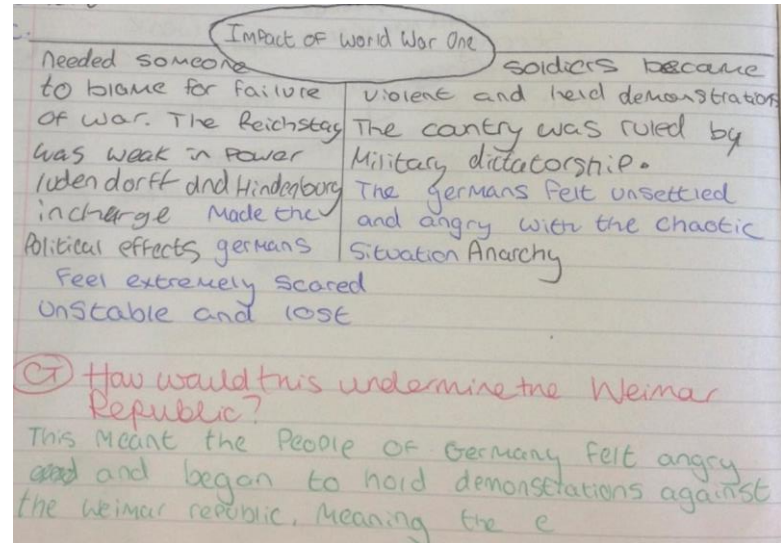 Impact of World War One
Needed someone
to blame for failure
of war. The Reichstag
was weak in power
ludendorff and Hindenburg
incharge Made the
Political effects germans
Feel extremely scared
unstable and lost
soldiers became
violent and held demonstration
The cantry was ruled by
Military dictatorship.
The germans felt unsettled
and angry with the chaotic
situation Anarchy
How would this undermine the Weimar
Republic?
This meant the People of Germany felt angry
and began to hold demonstrations against
the weimar republic. Meaning the e